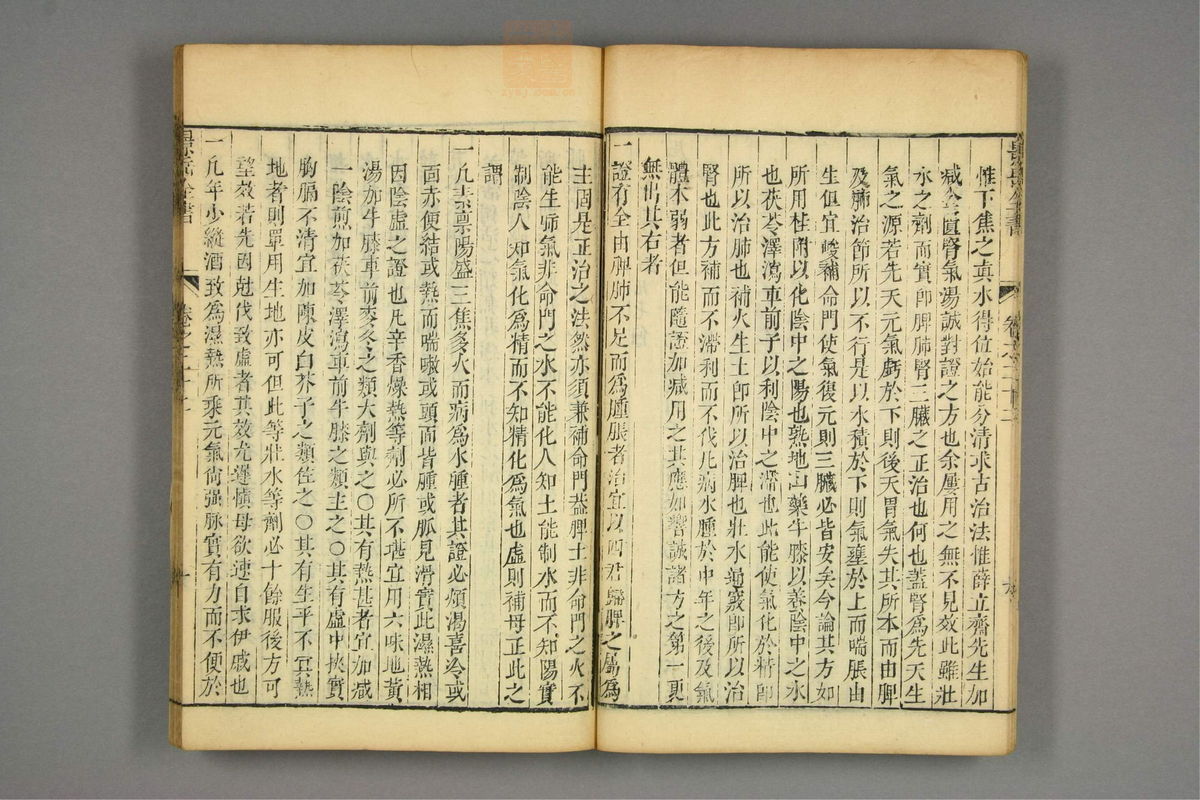 景岳全書
卷之二十二
惟下焦之真水得位始能分清求古治法惟薛立齋先生加
減金匱腎氣湯誠對證之方也余屢用之無不見效此雖壯
水之劑而實即脾肺腎三臟之正治也何也蓋腎爲先天生
氣之源若先天元氣虧於下則後天胃氣失其所本而由脾
及肺治節所以不行是以水積於下則氣壅於上而喘脹由
生但宜峻補命門使氣復元則三臟必皆安矣今論其方如
所用桂附以化陰中之陽也熟地山藥牛膝以養陰中之水
也茯苓澤瀉車前子以利陰中之滯也此能使氣化於精即
所以治肺也補火生土即所以治脾也壯水通竅即所以治
腎也此方補而不滯利而不伐凡病水腫於中年之後及氣
體本弱者但能隨證加減用之其應如響誠諸方之第一更
無出其右者
一證有全由脾肺不足而爲腫脹者治宜以四君歸脾之屬爲
主固是正治之法然亦須兼補命門蓋脾土非命門之火不
能生肺氣非命門之水不能化人知土能制水而不知陽實
制陰人知氣化爲精而不知精化爲氣也虛則補母正此之
謂
一凡素禀陽盛三焦多火而病爲水腫者其證必煩渴喜冷或
面赤便結或熱而喘嗽或頭面皆腫或脈見滑實此濕熱相
因陰虛之證也凡辛香燥熱等劑必所不堪宜用六味地黃
湯加牛膝車前麥冬之類大劑與之〇其有熱甚者宜加減
一陰煎加茯苓澤瀉車前牛膝之類主之〇其有虛中挾實
胸膈不清宜加陳皮白芥子之類佐之〇其有生平不宜熱
地者則單用生地亦可但此等壯水等劑必十餘服後方可
望效若先因尅伐致虛者其效尤遲慎毋欲速自求伊戚也
一凡年少縱酒致爲濕熱所乘元氣尚强脈實有力而不便於
景岳全書
卷之二十二